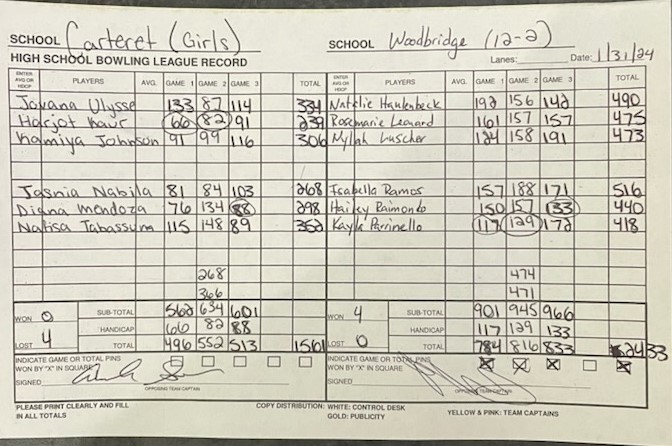 SCHOOL Carteret (Girls) SCHOOL Woodbridge (12-2)
HIGH SCHOOL BOWLING LEAGUE RECORD Lanes: Date: 1/31/24
ENTER AVG OR HDCP PLAYERS AVG. GAME 1 GAME 2 GAME 3 TOTAL ENTER AVG OR HDCP PLAYERS AVG. GAME 1 GAME 2 GAME 3 TOTAL
Jovana Ulysse 133 87 114 334 Natalie Hankenbeck 192 156 142 490
Harjot Kaur 66 82 91 239 Rosemarie Leonard 161 157 157 475
Kamiya Johnson 91 99 116 306 Nylah Luscher 124 158 191 473
Jasnia Nabila 81 84 103 268 Isabella Ramos 157 188 171 516
Diana Mendoza 76 134 88 298 Hailey Raimondo 150 157 133 440
Nafisa Tabassum 115 148 89 352 Kayla Parrinello 117 129 172 418
268 474
366 471
WON 0 SUB-TOTAL 562 634 601 WON 4 SUB-TOTAL 901 945 966
HANDICAP 66 82 88 HANDICAP 117 129 133
LOST 4 TOTAL 496 552 513 1561 LOST 0 TOTAL 784 816 833 2433
INDICATE GAME OR TOTAL PINS WON BY "X" IN SQUARE INDICATE GAME OR TOTAL PINS WON BY "X" IN SQUARE X X X X
SIGNED SIGNED
OPPOSING TEAM CAPTAIN OPPOSING TEAM CAPTAIN
PLEASE PRINT CLEARLY AND FILL COPY DISTRIBUTION: WHITE: CONTROL DESK YELLOW & PINK: TEAM CAPTAINS
IN ALL TOTALS GOLD: PUBLICITY